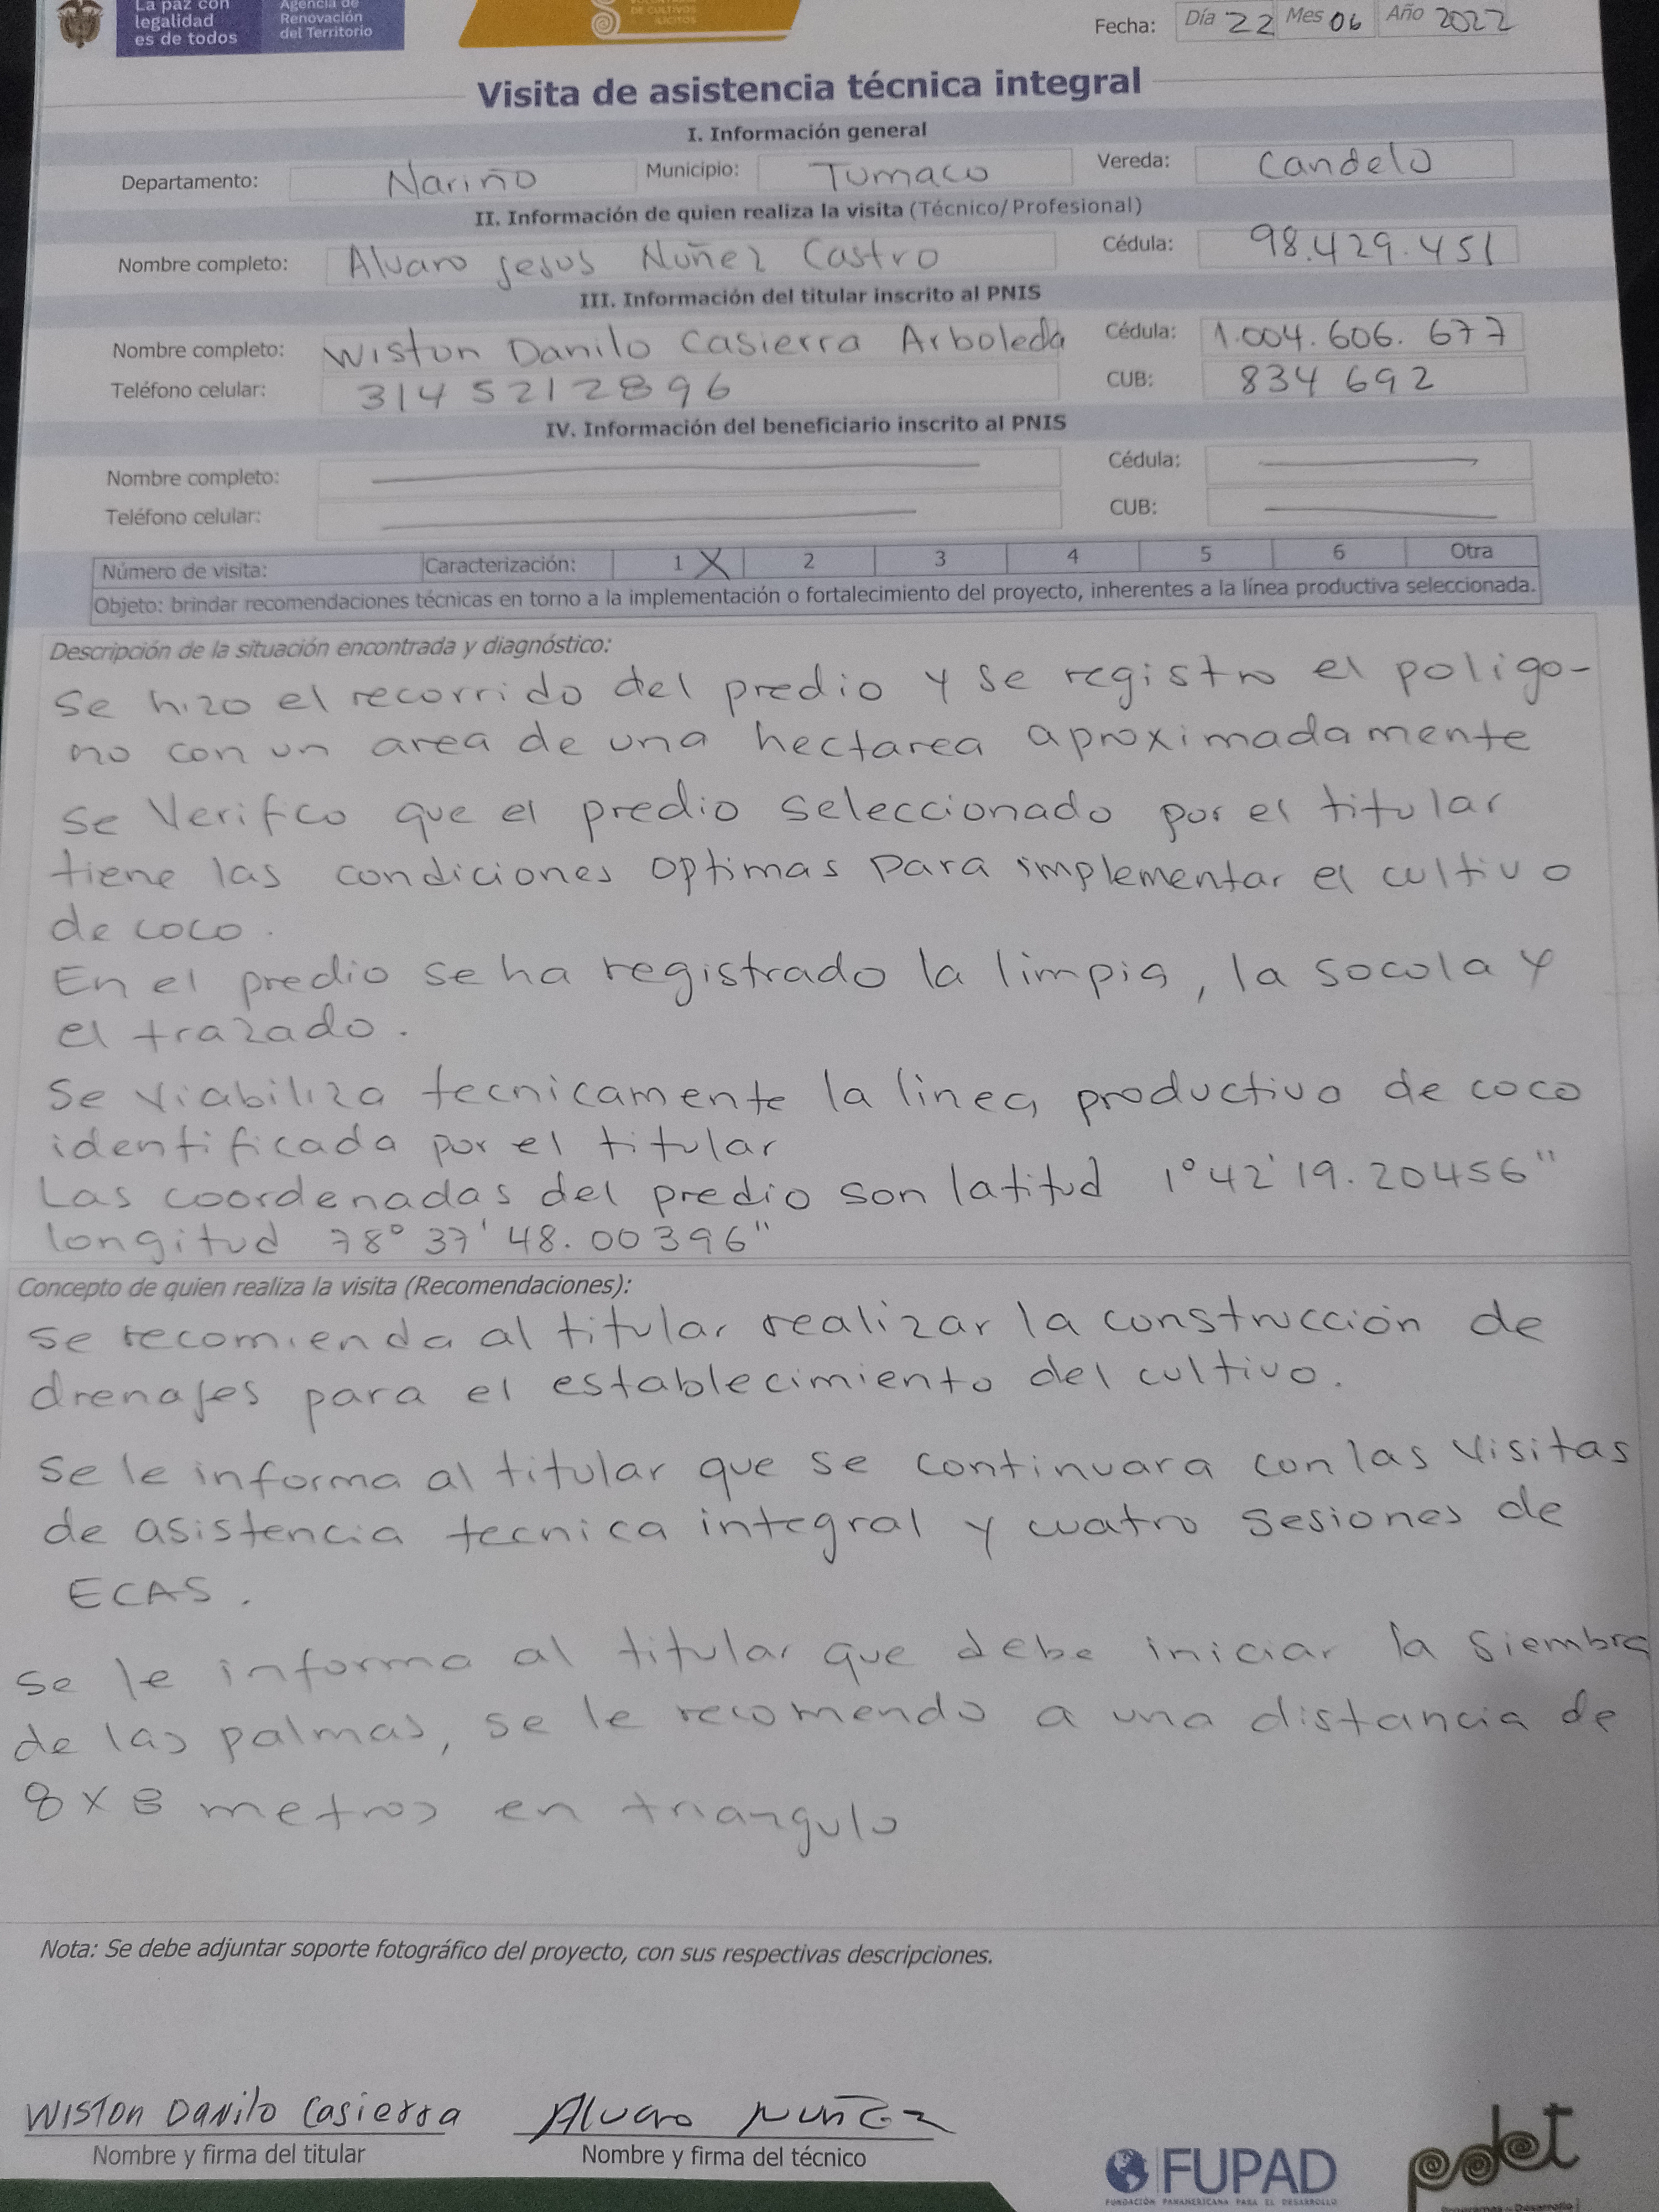 La paz con
legalidad
es de todos
Agencia de
Renovación
del Territorio
DE CULTIVOS
ILÍCITOS
Fecha: Día 22 Mes 06 Año 2022
Visita de asistencia técnica integral
I. Información general
Departamento: Nariño Municipio: Tumaco Vereda: Candelo
II. Información de quien realiza la visita (Técnico/Profesional)
Nombre completo: Alvaro Jesus Nuñez Castro Cédula: 98.429.451
III. Información del titular inscrito al PNIS
Nombre completo: Wiston Danilo Casierra Arboleda Cédula: 1.004.606.677
Teléfono celular: 314 5212896 CUB: 834 692
IV. Información del beneficiario inscrito al PNIS
Nombre completo: Cédula:
Teléfono celular: CUB:
Número de visita: Caracterización: 1 X 2 3 4 5 6 Otra
Objeto: brindar recomendaciones técnicas en torno a la implementación o fortalecimiento del proyecto, inherentes a la línea productiva seleccionada.
Descripción de la situación encontrada y diagnóstico:
Se hizo el recorrido del predio y se registro el poligo-
no con un area de una hectarea aproximadamente
Se Verifco que el predio seleccionado por el titular
tiene las condiciones optimas para implementar el cultivo
de coco.
En el predio se ha registrado la limpia, la socola y
el trazado.
Se viabiliza tecnicamente la linea productiva de coco
identificada por el titular
Las coordenadas del predio son latitud 1°42'19.20456"
longitud 78°37'48.00396"
Concepto de quien realiza la visita (Recomendaciones):
Se recomienda al titular realizar la construcción de
drenajes para el establecimiento del cultivo.
Se le informa al titular que se continuara con las visitas
de asistencia tecnica integral y cuatro sesiones de
ECAS.
Se le informa al titular que debe iniciar la siembra
de las palmas, se le recomendo a una distancia de
8 x 8 metros en triangulo
Nota: Se debe adjuntar soporte fotográfico del proyecto, con sus respectivas descripciones.
Wiston Danilo Casierra Alvaro Nuñez
Nombre y firma del titular Nombre y firma del técnico
FUPAD
FUNDACIÓN PANAMERICANA PARA EL DESARROLLO
pdet